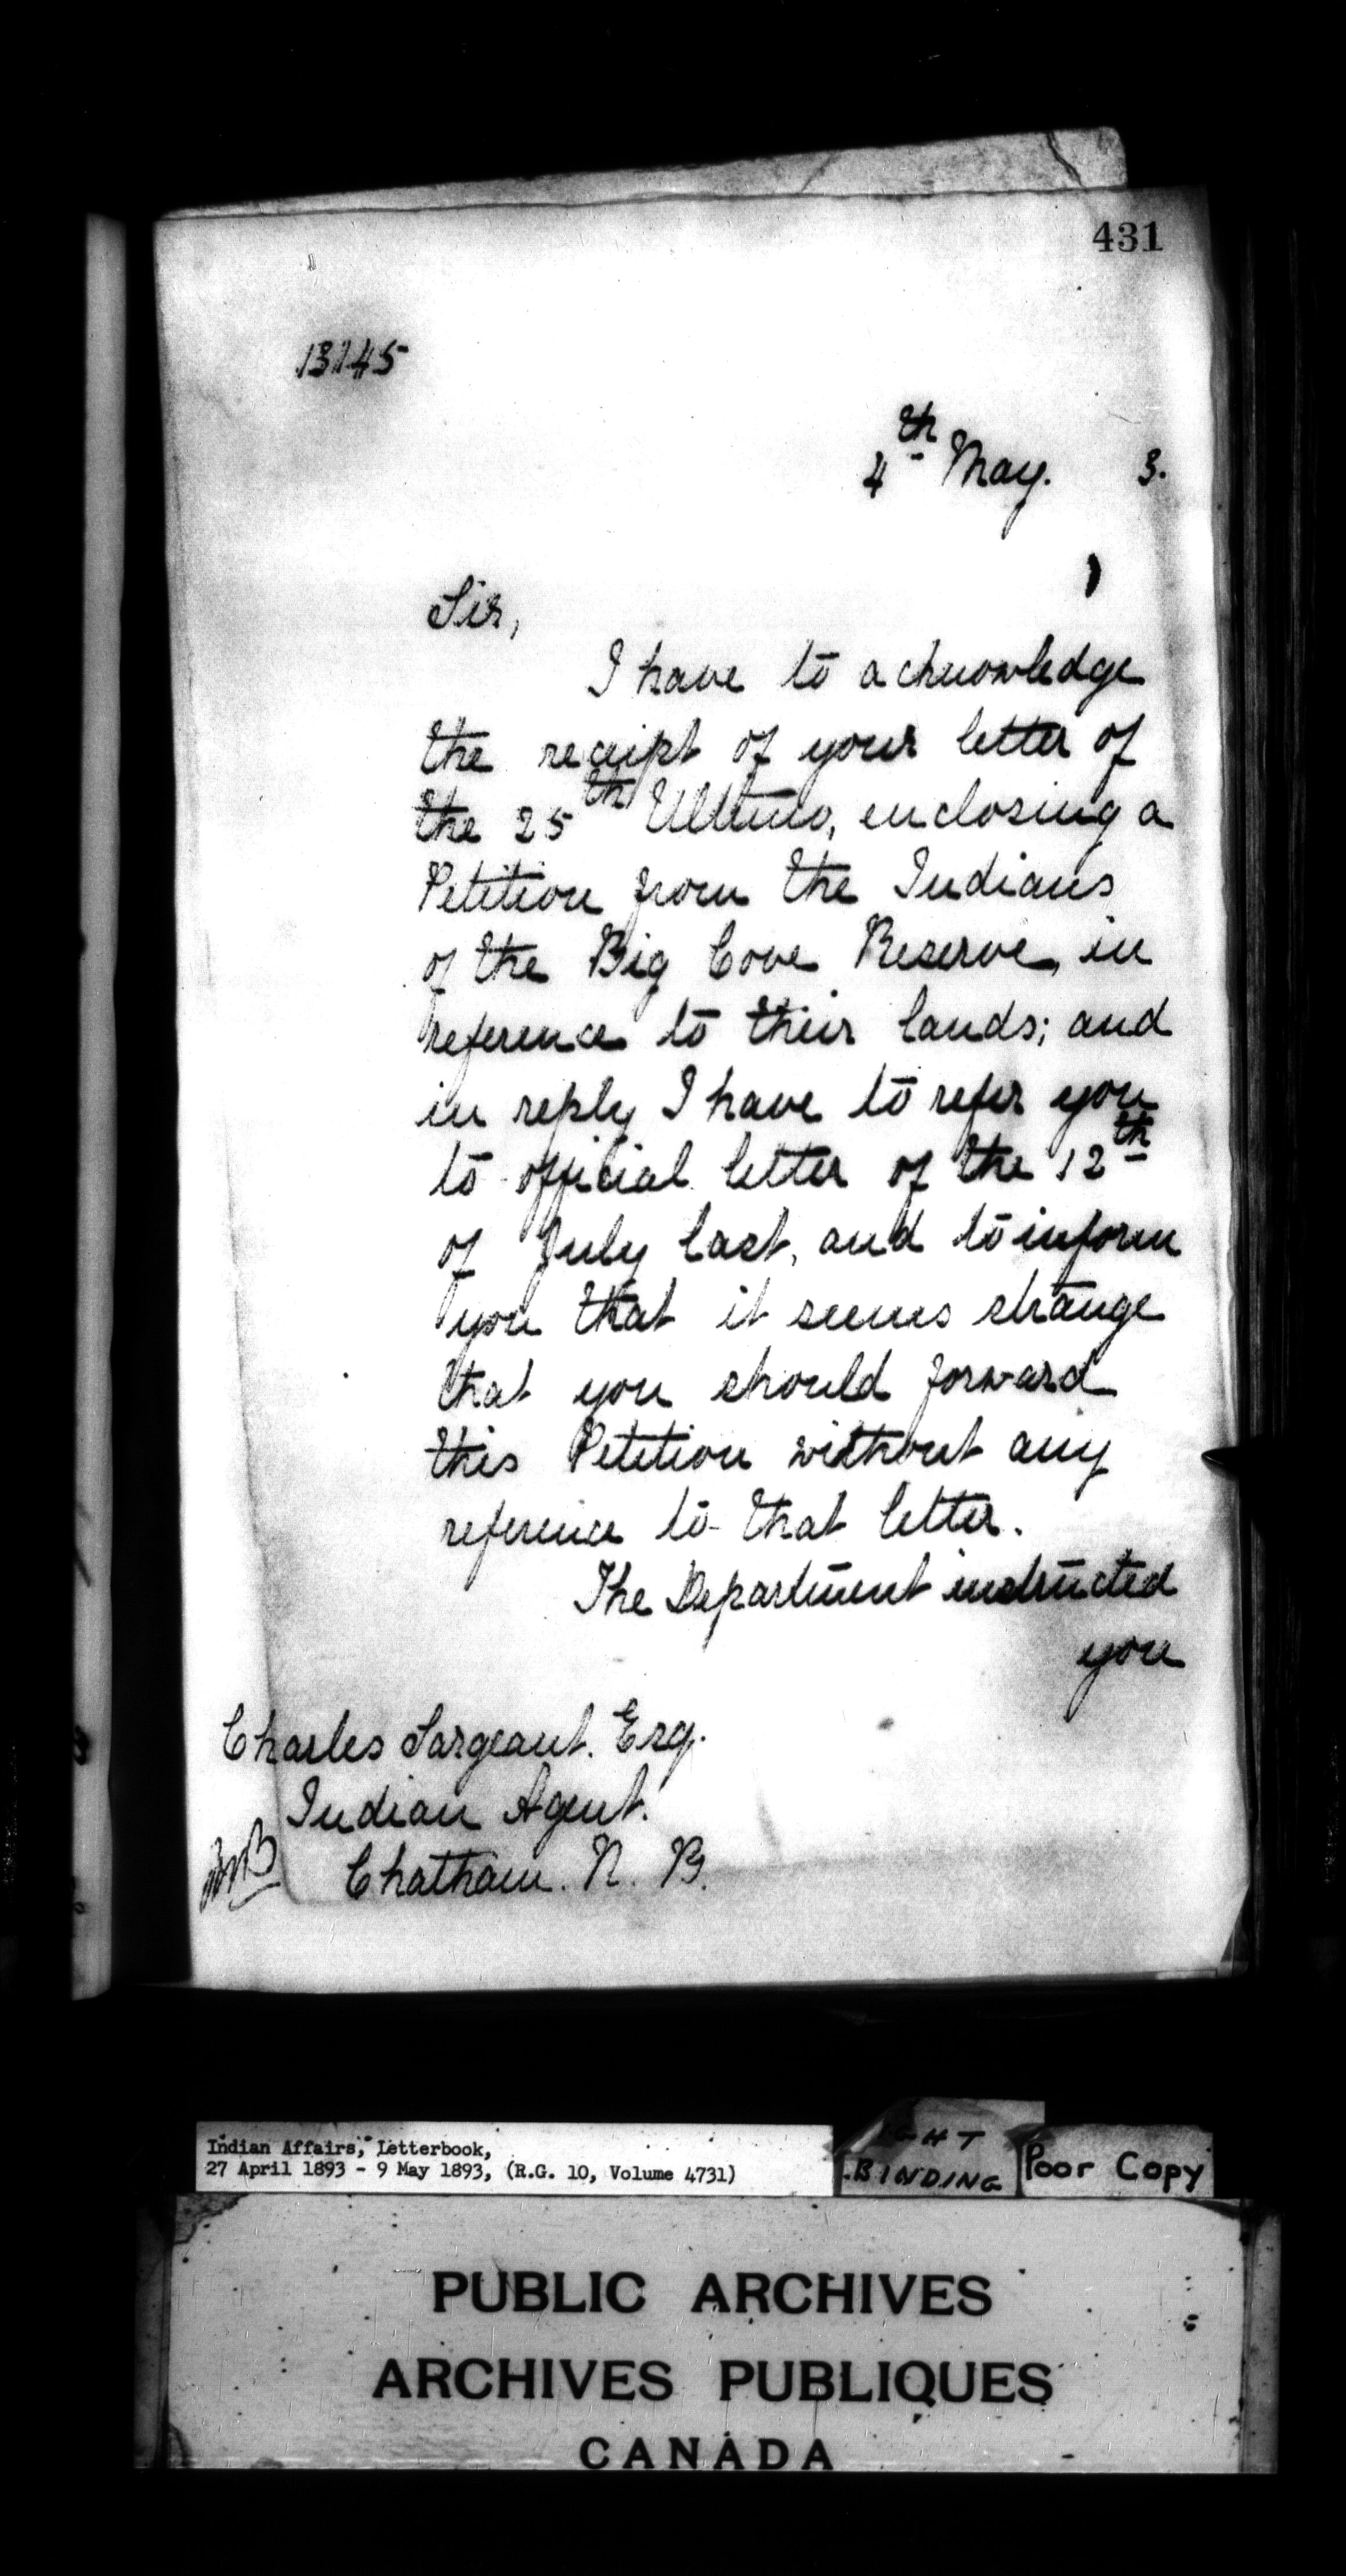 431
13145
4th May. 3.
Sir,
I have to acknowledge
the receipt of your letter of
the 25th Ultimo, enclosing a
Petition from the Indians
of the Big Cove Reserve, in
reference to their lands; and
in reply I have to refer you
to official letter of the 12th
of July last, and to inform
you that it seems strange
that you should forward
this Petition without any
reference to that letter.
The Department instructed
you
Charles Sargeant. Esq.
Indian Agent.
Chatham. N. B.
Indian Affairs, Letterbook,
27 April 1893 - 9 May 1893, (R.G. 10, Volume 4731)
BINDING
Poor Copy
PUBLIC ARCHIVES
ARCHIVES PUBLIQUES
CANADA